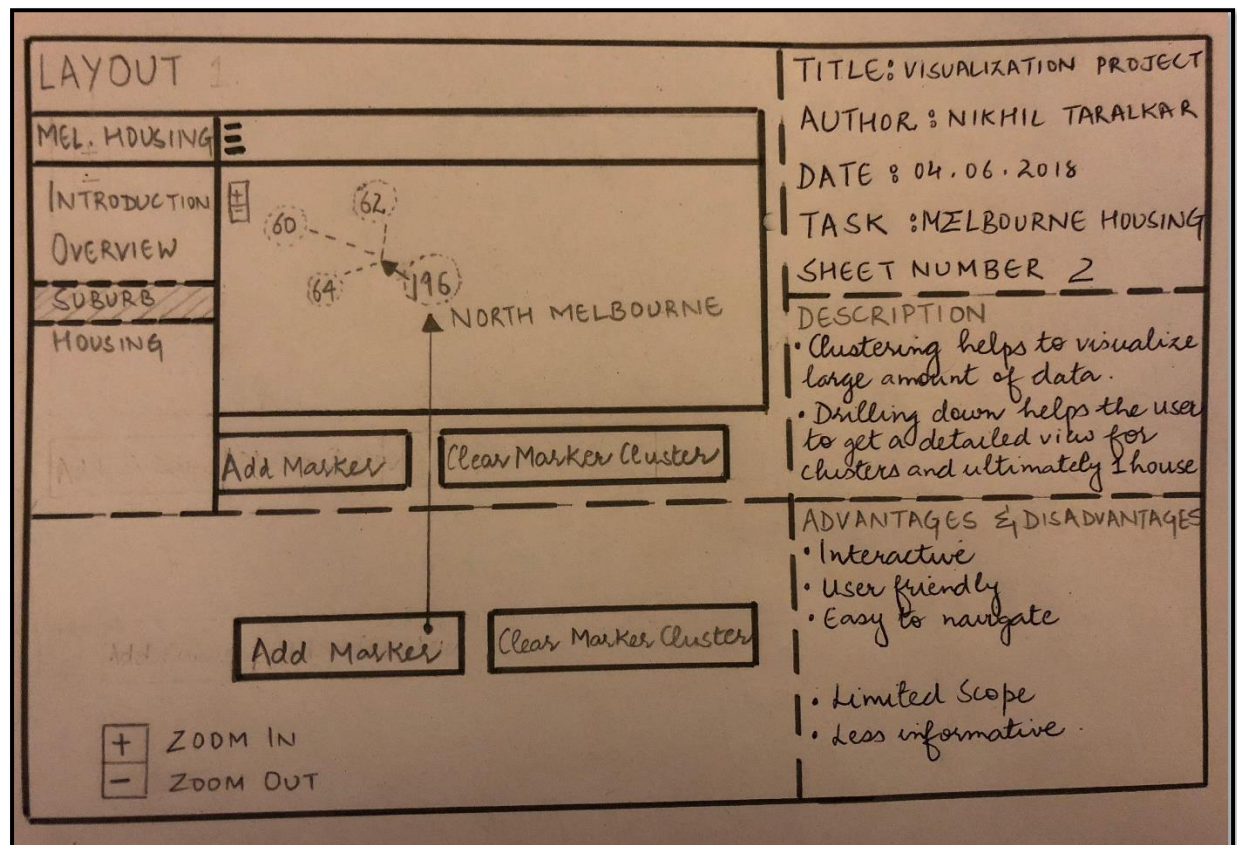 LAYOUT 1
MEL. HOUSING
INTRODUCTION
OVERVIEW
SUBURB
HOUSING
+
-
60
62
64
196
NORTH MELBOURNE
Add Marker
Clear Marker Cluster
Add Marker
Clear Marker Cluster
+ ZOOM IN
- ZOOM OUT
TITLE: VISUALIZATION PROJECT
AUTHOR: NIKHIL TARALKAR
DATE: 04.06.2018
TASK: MELBOURNE HOUSING
SHEET NUMBER 2
DESCRIPTION
• Clustering helps to visualize
large amount of data.
• Drilling down helps the user
to get a detailed view for
clusters and ultimately 1 house
ADVANTAGES & DISADVANTAGES
• Interactive
• User friendly
• Easy to navigate
• Limited Scope
• Less informative.